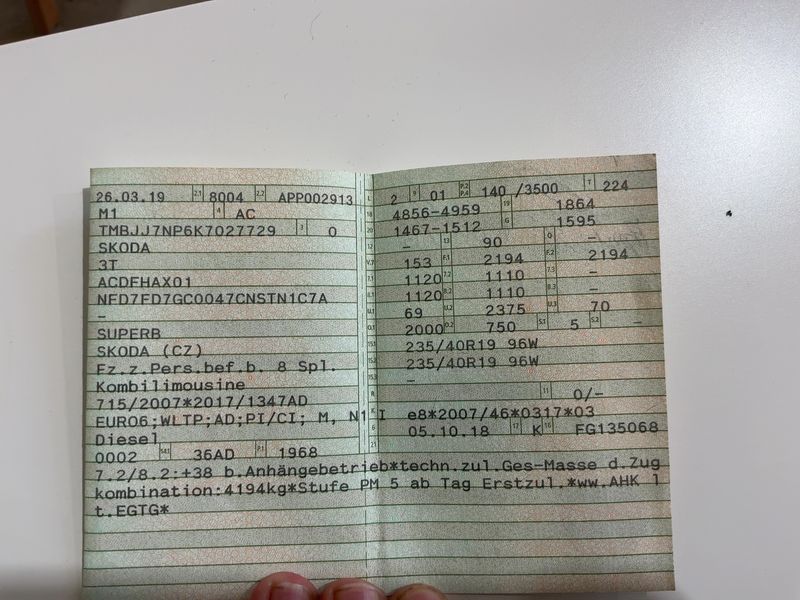 26.03.19 2.1 8004 2.2 APP002913
M1 4 AC
TMBJJ7NP6K7027729 3 0
SKODA
3T
ACDFHAX01
NFD7FD7GC0047CNSTN1C7A
–
SUPERB
SKODA (CZ)
Fz.z.Pers.bef.b. 8 Spl.
Kombilimousine
715/2007*2017/1347AD
EURO6;WLTP;AD;PI/CI; M, N1 I
Diesel
0002 36AD P.1 1968
L 2 9 01 P.2 P.4 140 /3500 T 224
18 4856-4959 19 1864
20 1467-1512 G 1595
12 – 13 90 Q –
V.7 153 F.1 2194 F.2 2194
7.1 1120 7.2 1110 7.3 –
8.1 1120 8.2 1110 8.3 –
U.1 69 U.2 2375 U.3 70
O.1 2000 O.2 750 S.1 5 S.2 –
15.1 235/40R19 96W
15.2 235/40R19 96W
15.3 –
R 11 0/–
K e8*2007/46*0317*03
6 05.10.18 17 K 16 FG135068
21
7.2/8.2:+38 b.Anhängebetrieb*techn.zul.Ges-Masse d.Zug
kombination:4194kg*Stufe PM 5 ab Tag Erstzul.*ww.AHK l
t.EGTG*